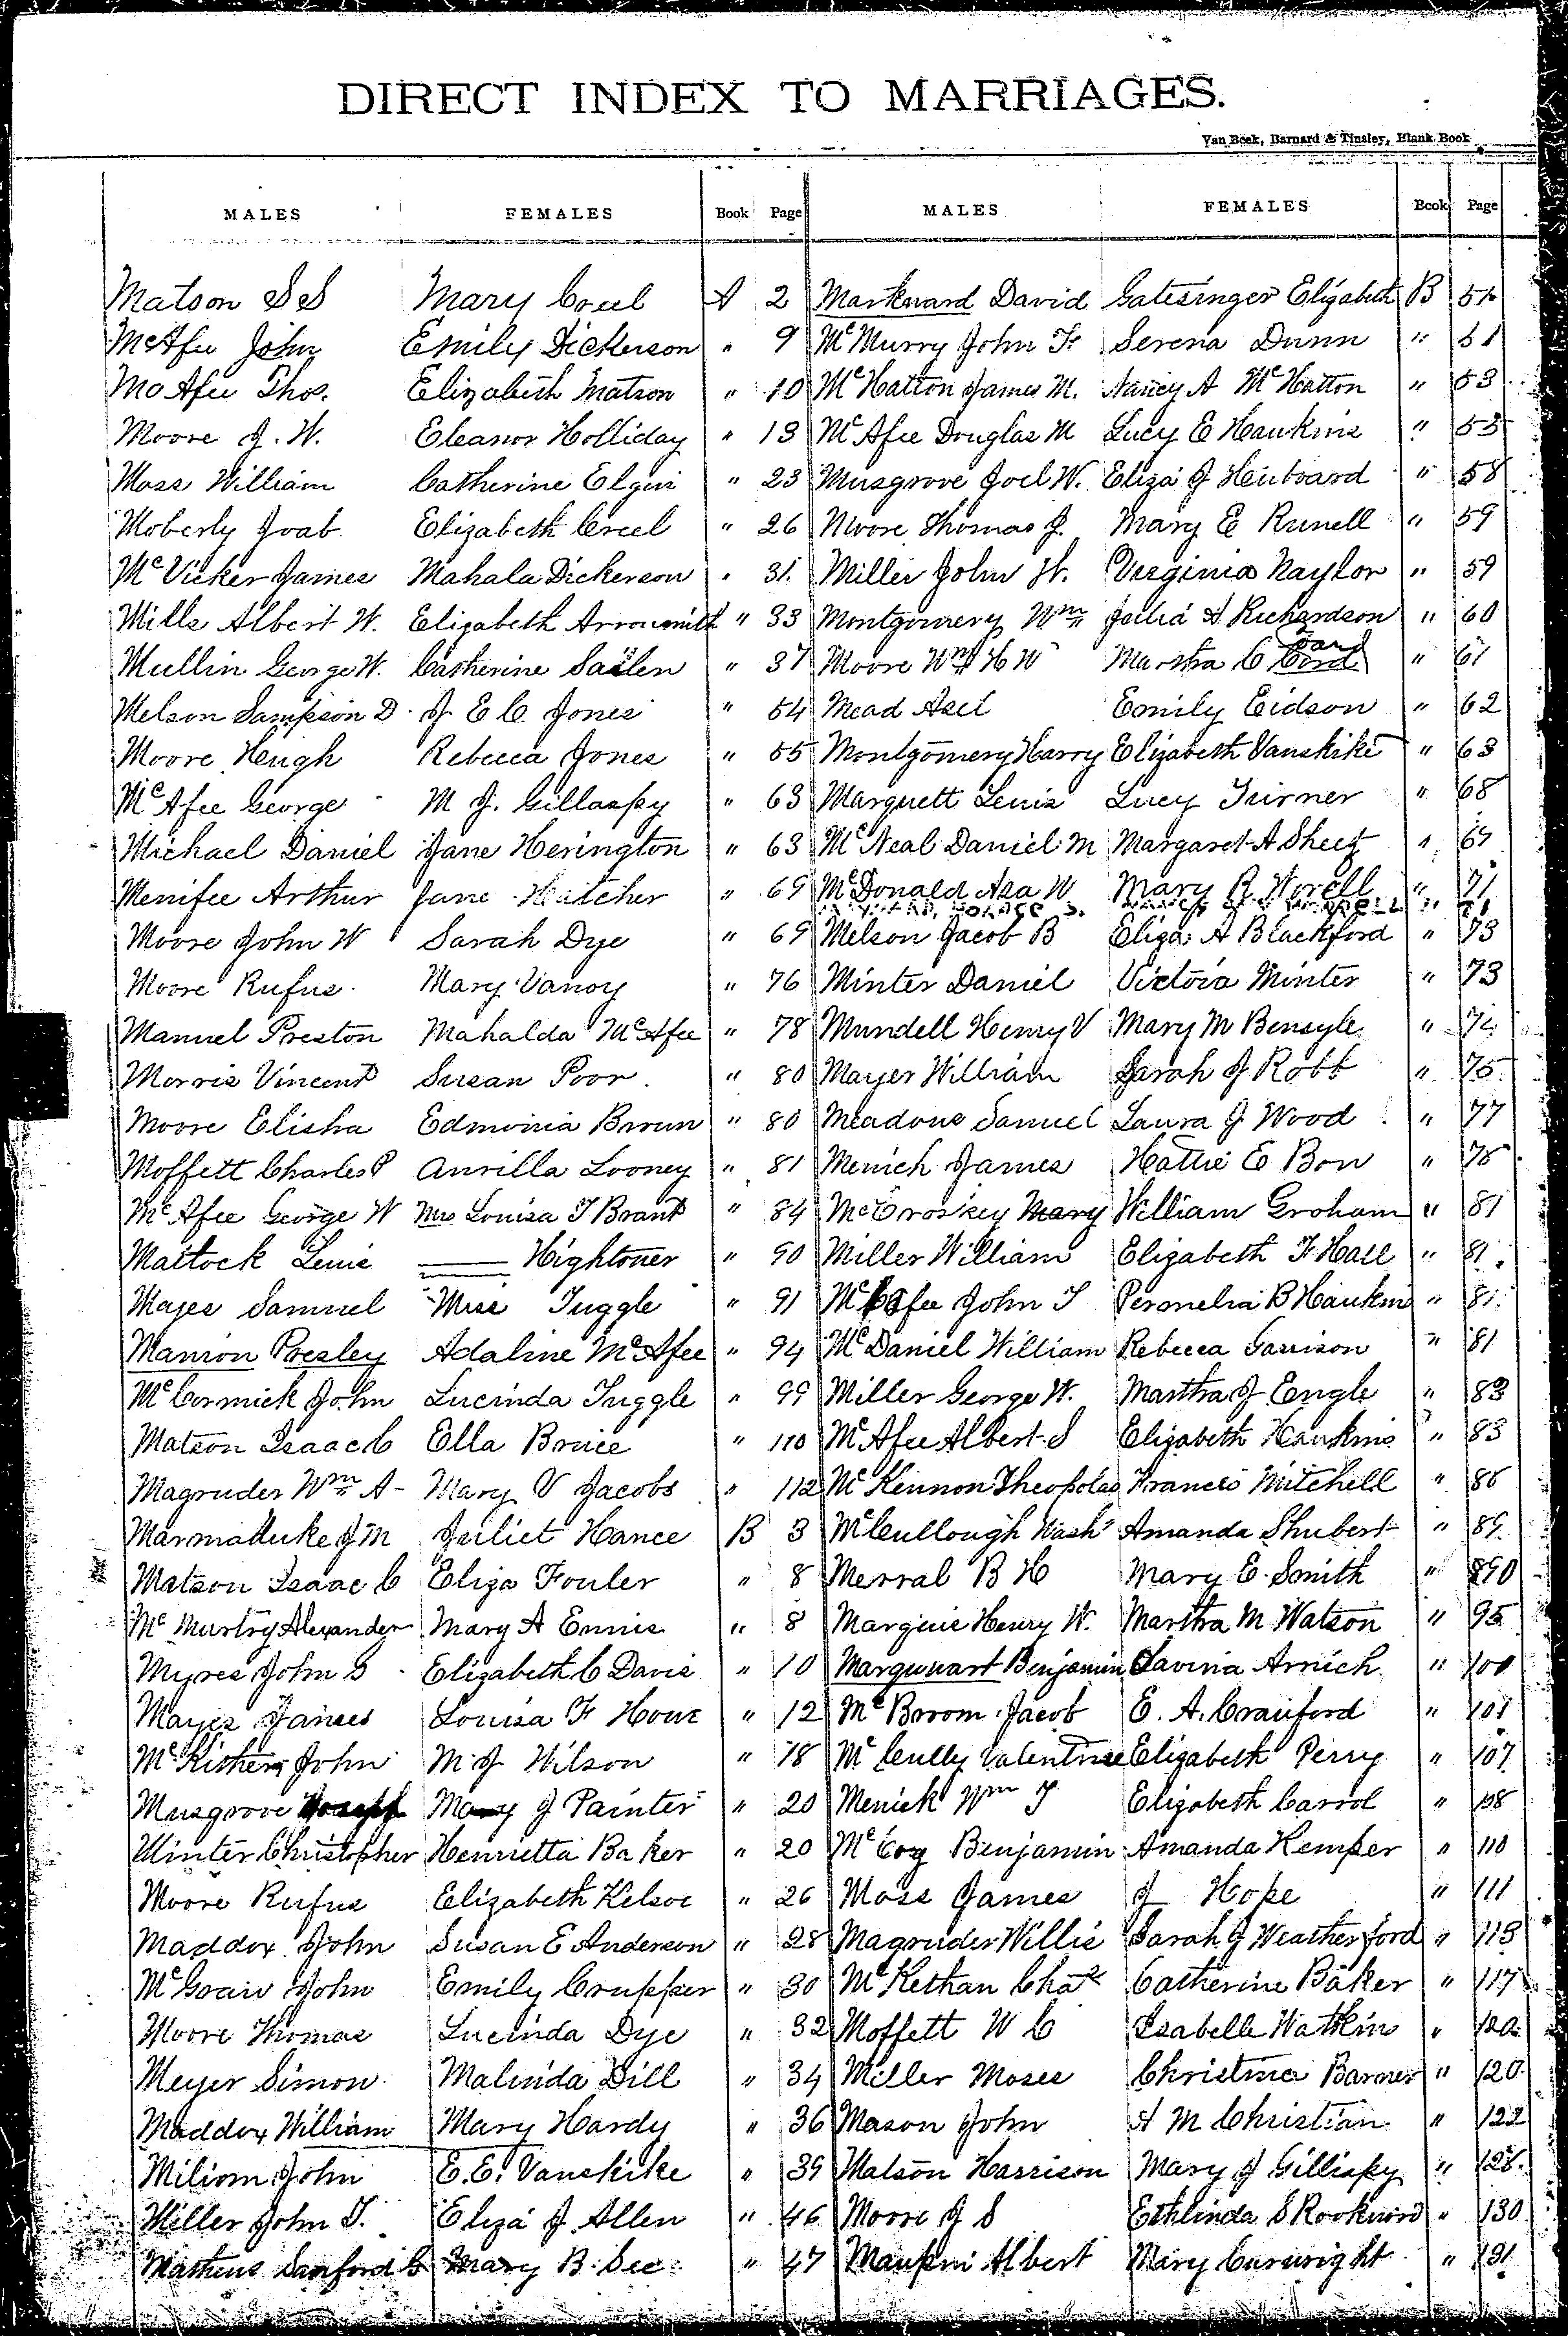 DIRECT INDEX TO MARRIAGES.
Van Beek, Barnard & Tinsley, Blank Book
MALES FEMALES Book Page MALES FEMALES Book Page
Matson S S Mary Creel A 2
McAfee John Emily Dickerson " 9
McAfee Thos. Elizabeth Matson " 10
Moore J. W. Eleanor Holliday " 13
Moss William Catherine Elgin " 23
Moberly Joab Elizabeth Creel " 26
McVicker James Mahala Dickerson " 31
Mills Albert W. Elizabeth Arrowsmith " 33
Mullin George W. Catherine " 37
Melson Sampson D. J E C Jones " 54
Moore Hugh Rebecca Jones " 55
McAfee George M J. Gillaspy " 63
Michael Daniel Jane Herington " 63
Menifee Arthur Jane Hatcher " 69
Moore John W Sarah Dye " 69
Moore Rufus Mary Vanoy " 76
Manuel Preston Mahalda McAfee " 78
Morris Vincent Susan Poor " 80
Moore Elisha Edmonia Brown " 80
Moffett Charles P Aurilla Looney " 81
McAfee George W Mrs Louisa J Brant " 84
Mattock Lewis —— Hightower " 90
Mayes Samuel Miss Tuggle " 91
Manion Presley Adaline McAfee " 94
McCormick John Lucinda Tuggle " 99
Matson Isaac C Ella Bruice " 110
Magruder Wm A- Mary V Jacobs " 112
Marmaduke J M Juliet Hance B 3
Matson Isaac C Eliza Fowler " 8
McMurtry Alexander Mary A Ennis " 8
Myres John G Elizabeth C Davis " 10
Mayes James Louisa F Howe " 12
John M J Wilson " 18
Musgrove Joseph Mary J Painter " 20
Minter Christopher Henrietta Baker " 20
Moore Rufus Elizabeth Kelsoe " 26
Maddox John Susan E Anderson " 28
McGraw John Emily Crupper " 30
Moore Thomas Lucinda Dye " 32
Meyer Simon Malinda Dill " 34
Maddox William Mary Hardy " 36
Miliom John E. E. Vanskike " 39
Miller John T. Eliza J Allen " 46
Mathews Sanford G Mary B. See " 47
Markward David Gatesinger Elizabeth B 51
McMurry John F. Serena Dunn " 51
McHatton James M. Nancy A McHatton " 53
McAfee Douglas M Lucy E Hawkins " 55
Musgrove Joel W. Eliza J " 58
Moore Thomas J. Mary E Runell " 59
Miller John W. Virginia Naylor " 59
Montgomery Wm Julia A Richardson " 60
Moore Wm H W Martha C " 61
Mead Asel Emily Eidson " 62
Montgomery Harry Elizabeth Vanskike " 63
Marquett Lewis Lucy Turner " 68
McNeal Daniel M Margaret A Sheets " 69
McDonald Asa W Mary R Worell " 71
Melson Jacob B Eliza A Blackford " 73
Minter Daniel Victoria Minter " 73
Mundell Henry V Mary M Bensyle " 74
Mayer William Sarah J Robb " 75
Meadows Samuel Laura J Wood " 77
Menich James Hattie E Bon " 78
McCroskey Mary William Groham " 81
Miller William Elizabeth F Hall " 81
McAfee John T Permelia B Hawkins " 81
McDaniel William Rebecca Garrison " 81
Miller George W. Martha J Engle " 83
McAfee Albert S Elizabeth Hawkins " 83
McKennon Theopolas Francis Mitchell " 86
McCullough Nash Amanda Shubert " 89
Merral B H Mary E. Smith " 90
Marquis Henry W. Martha M Watson " 95
Marquwart Benjamin Lavina Amich " 100
McBroom Jacob E. A. Crawford " 101
McCully Valentine Elizabeth Perry " 107
Menick Wm T Elizabeth Carrol " 108
McCoy Benjamin Amanda Kemper " 110
Moss James J Hope " 111
Magruder Willis Sarah J Weatherford " 113
McKethan Chas Catherine Baker " 117
Moffett W C Isabelle Watkins " 120
Miller Moses Christina Barner " 120
Mason John A M Christian " 122
Matson Harrison Mary J Gillispy " 126
Moore J S Ethlinda S " 130
Maupin Albert Mary Curwright " 131